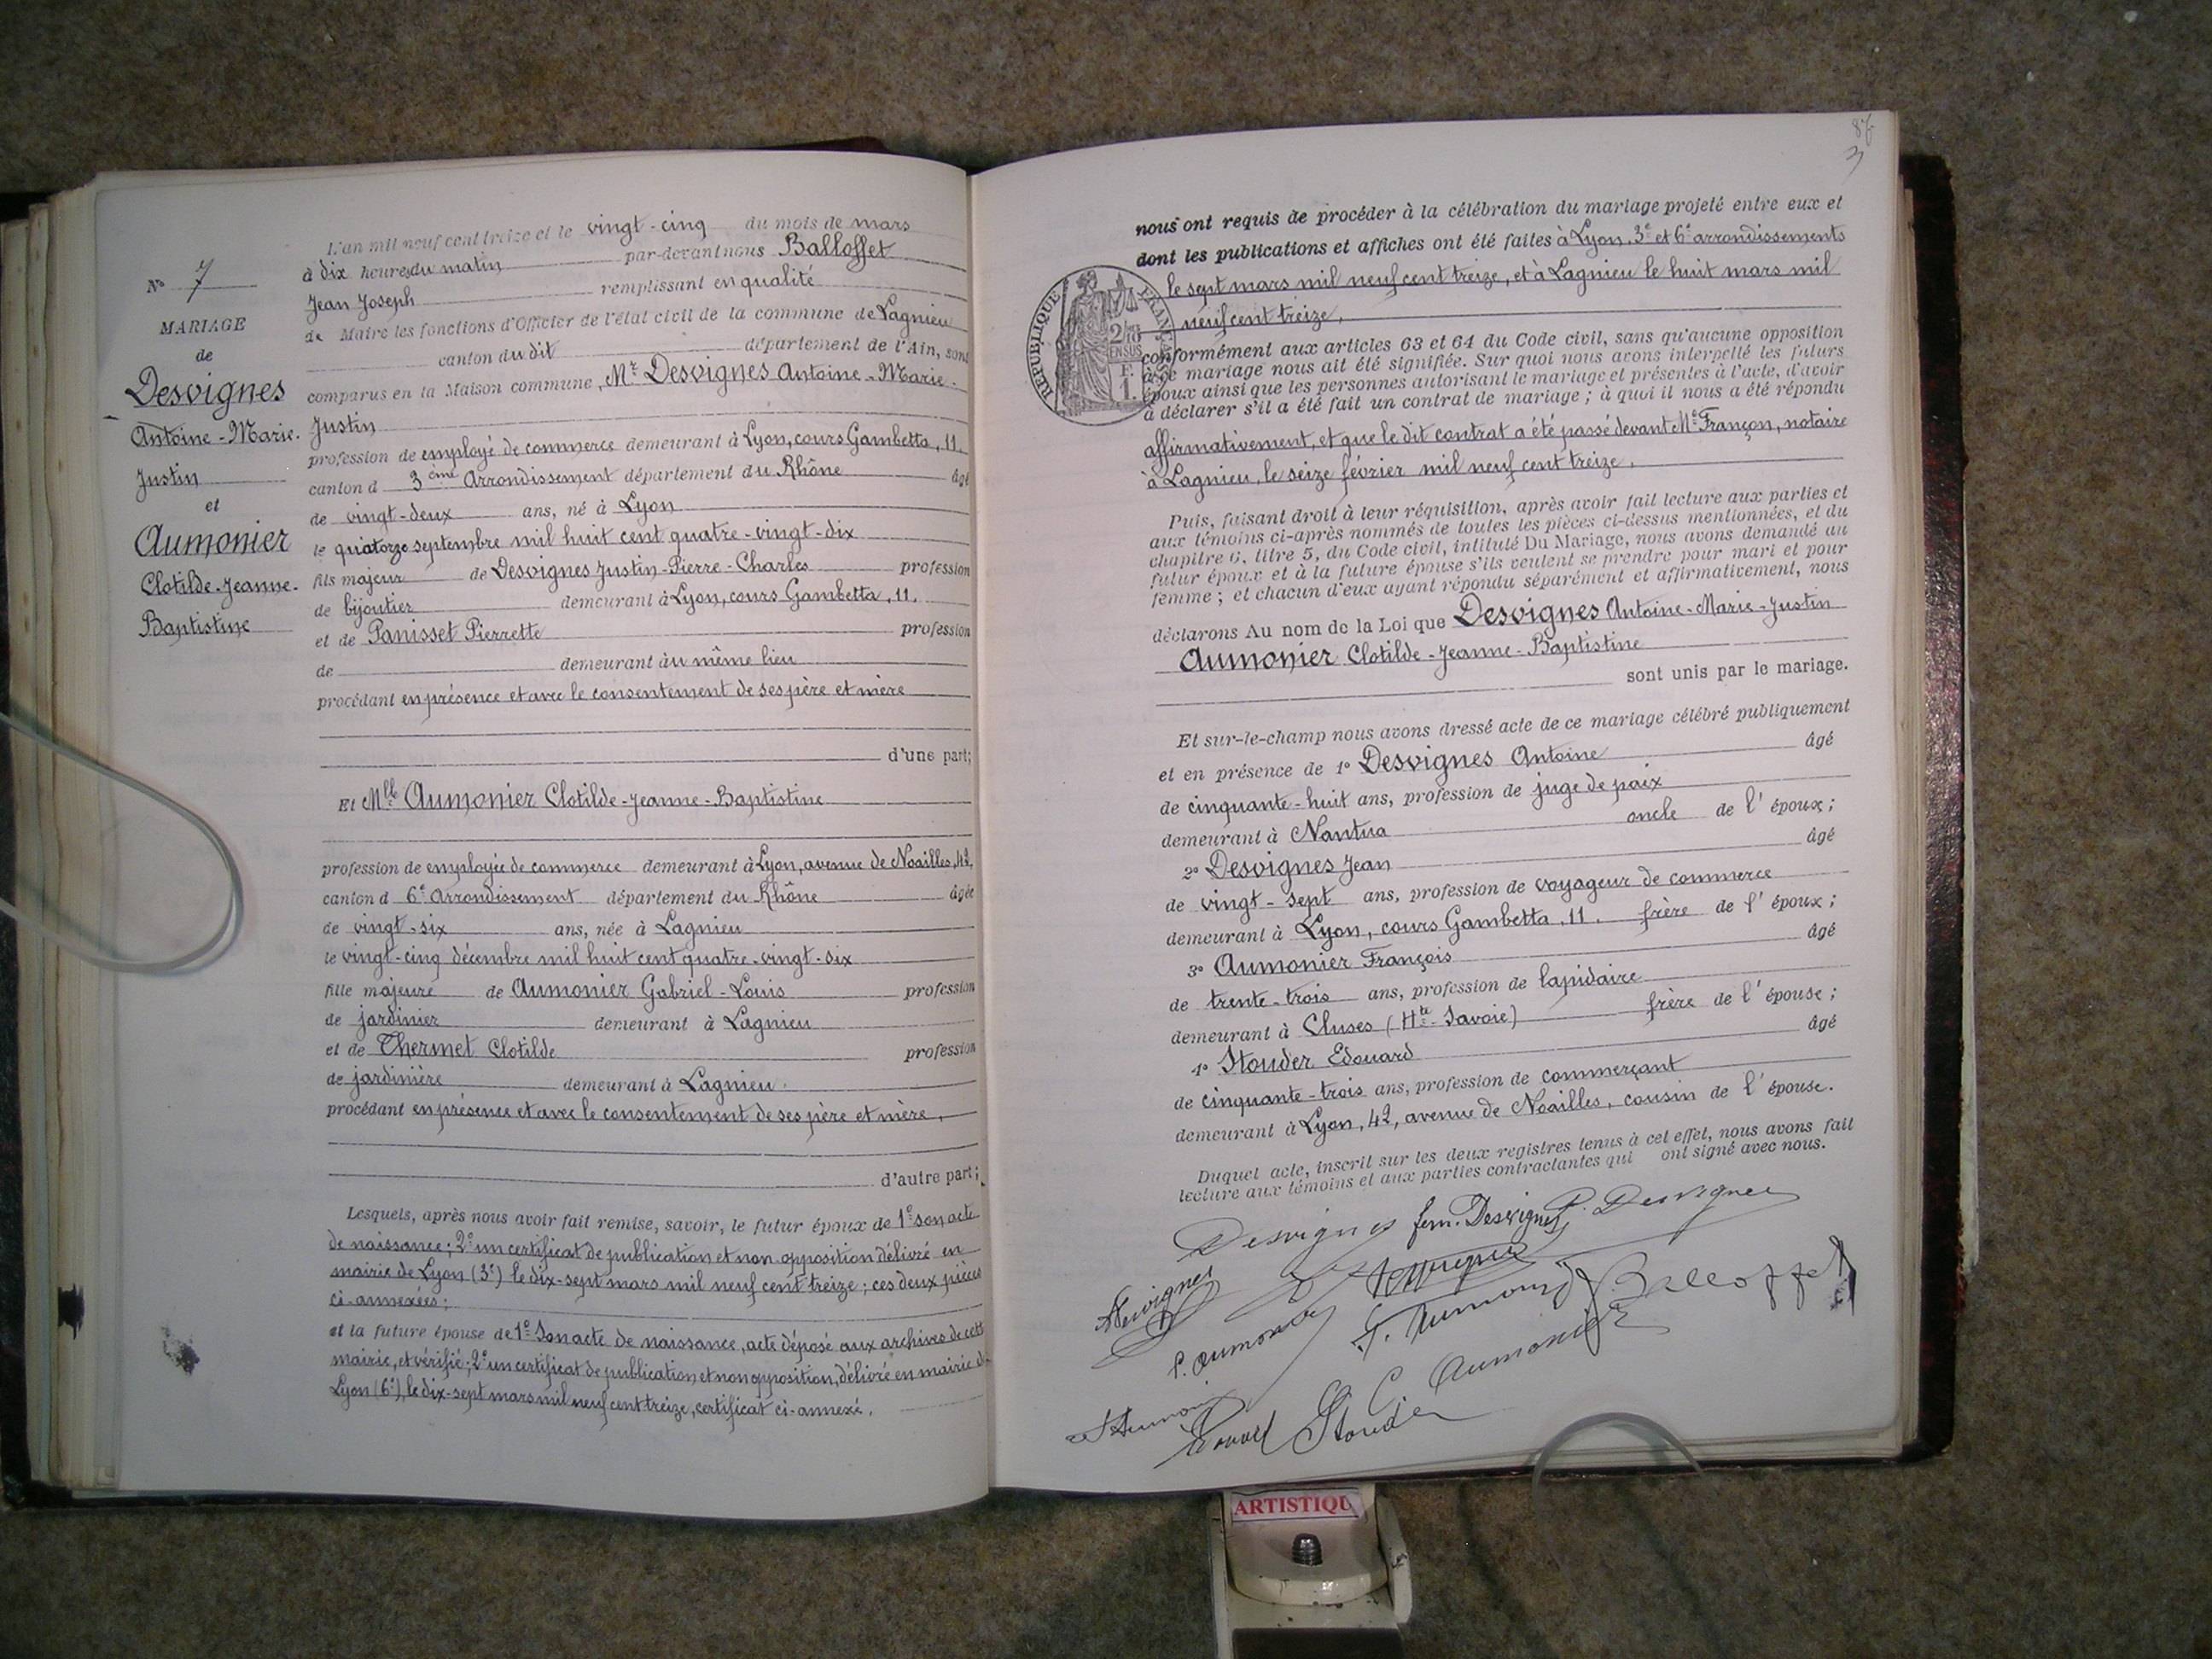 N° 7
MARIAGE
de
Desvignes
Antoine-Marie-
Justin
et
Aumonier
Clotilde-Jeanne-
Baptistine
L'an mil neuf cent treize et le vingt-cinq du mois de mars
à dix heures du matin par-devant nous Balloffet
Jean Joseph remplissant en qualité
de Maire les fonctions d'Officier de l'état civil de la commune de Lagnieu
canton du dit département de l'Ain, sont
comparus en la Maison commune, Mr Desvignes Antoine-Marie-
Justin
profession de employé de commerce demeurant à Lyon, cours Gambetta, 11.
canton d 3ème Arrondissement département du Rhône âgé
de vingt-deux ans, né à Lyon
le quatorze septembre mil huit cent quatre-vingt-dix
fils majeur de Desvignes Justin-Pierre-Charles profession
de bijoutier demeurant à Lyon, cours Gambetta, 11.
et de Panisset Pierrette profession
de demeurant au même lieu
procédant en présence et avec le consentement de ses père et mère
d'une part;
Et Mlle Aumonier Clotilde-Jeanne-Baptistine
profession de employée de commerce demeurant à Lyon, avenue de Noailles, 42,
canton d 6e Arrondissement département du Rhône âgée
de vingt-six ans, née à Lagnieu
le vingt-cinq décembre mil huit cent quatre-vingt-six
fille majeure de Aumonier Gabriel-Louis profession
de jardinier demeurant à Lagnieu
et de Thermet Clotilde profession
de jardinière demeurant à Lagnieu.
procédant en présence et avec le consentement de ses père et mère,
d'autre part;
Lesquels, après nous avoir fait remise, savoir, le futur époux de 1° son acte
de naissance; 2° un certificat de publication et non opposition délivré en
mairie de Lyon (3e) le dix-sept mars mil neuf cent treize; ces deux pièces
ci-annexées;
et la future épouse de 1° Son acte de naissance, acte déposé aux archives de cette
mairie, et vérifié; 2° un certificat de publication et non opposition, délivré en mairie de
Lyon (6e), le dix-sept mars mil neuf cent treize, certificat ci-annexé.
3
nous ont requis de procéder à la célébration du mariage projeté entre eux et
dont les publications et affiches ont été faites à Lyon, 3e et 6e arrondissements
le sept mars mil neuf cent treize, et à Lagnieu le huit mars mil
neuf cent treize,
RÉPUBLIQUE FRANÇAISE
2/10
EN SUS
F.
1.
conformément aux articles 63 et 64 du Code civil, sans qu'aucune opposition
à ce mariage nous ait été signifiée. Sur quoi nous avons interpellé les futurs
époux ainsi que les personnes autorisant le mariage et présentes à l'acte, d'avoir
à déclarer s'il a été fait un contrat de mariage; à quoi il nous a été répondu
affirmativement, et que le dit contrat a été passé devant Me Françon, notaire
à Lagnieu, le seize février mil neuf cent treize.
Puis, faisant droit à leur réquisition, après avoir fait lecture aux parties et
aux témoins ci-après nommés de toutes les pièces ci-dessus mentionnées, et du
chapitre 6, titre 5, du Code civil, intitulé Du Mariage, nous avons demandé au
futur époux et à la future épouse s'ils veulent se prendre pour mari et pour
femme; et chacun d'eux ayant répondu séparément et affirmativement, nous
déclarons Au nom de la Loi que Desvignes Antoine-Marie-Justin
Aumonier Clotilde-Jeanne-Baptistine
sont unis par le mariage.
Et sur-le-champ nous avons dressé acte de ce mariage célébré publiquement
et en présence de 1° Desvignes Antoine âgé
de cinquante-huit ans, profession de juge de paix
demeurant à Nantua oncle de l'époux;
2° Desvignes Jean âgé
de vingt-sept ans, profession de voyageur de commerce
demeurant à Lyon, cours Gambetta, 11. frère de l'époux;
3° Aumonier François âgé
de trente-trois ans, profession de lapidaire
demeurant à Cluses (Hte-Savoie) frère de l'épouse;
4° Stouder Edouard âgé
de cinquante-trois ans, profession de commerçant
demeurant à Lyon, 42, avenue de Noailles, cousin de l'épouse.
Duquel acte, inscrit sur les deux registres tenus à cet effet, nous avons fait
lecture aux témoins et aux parties contractantes qui ont signé avec nous.
Desvignes fem. Desvignes P. Desvignes
Desvignes
Balloffet
C. Aumonier
Stouder
ARTISTIQU